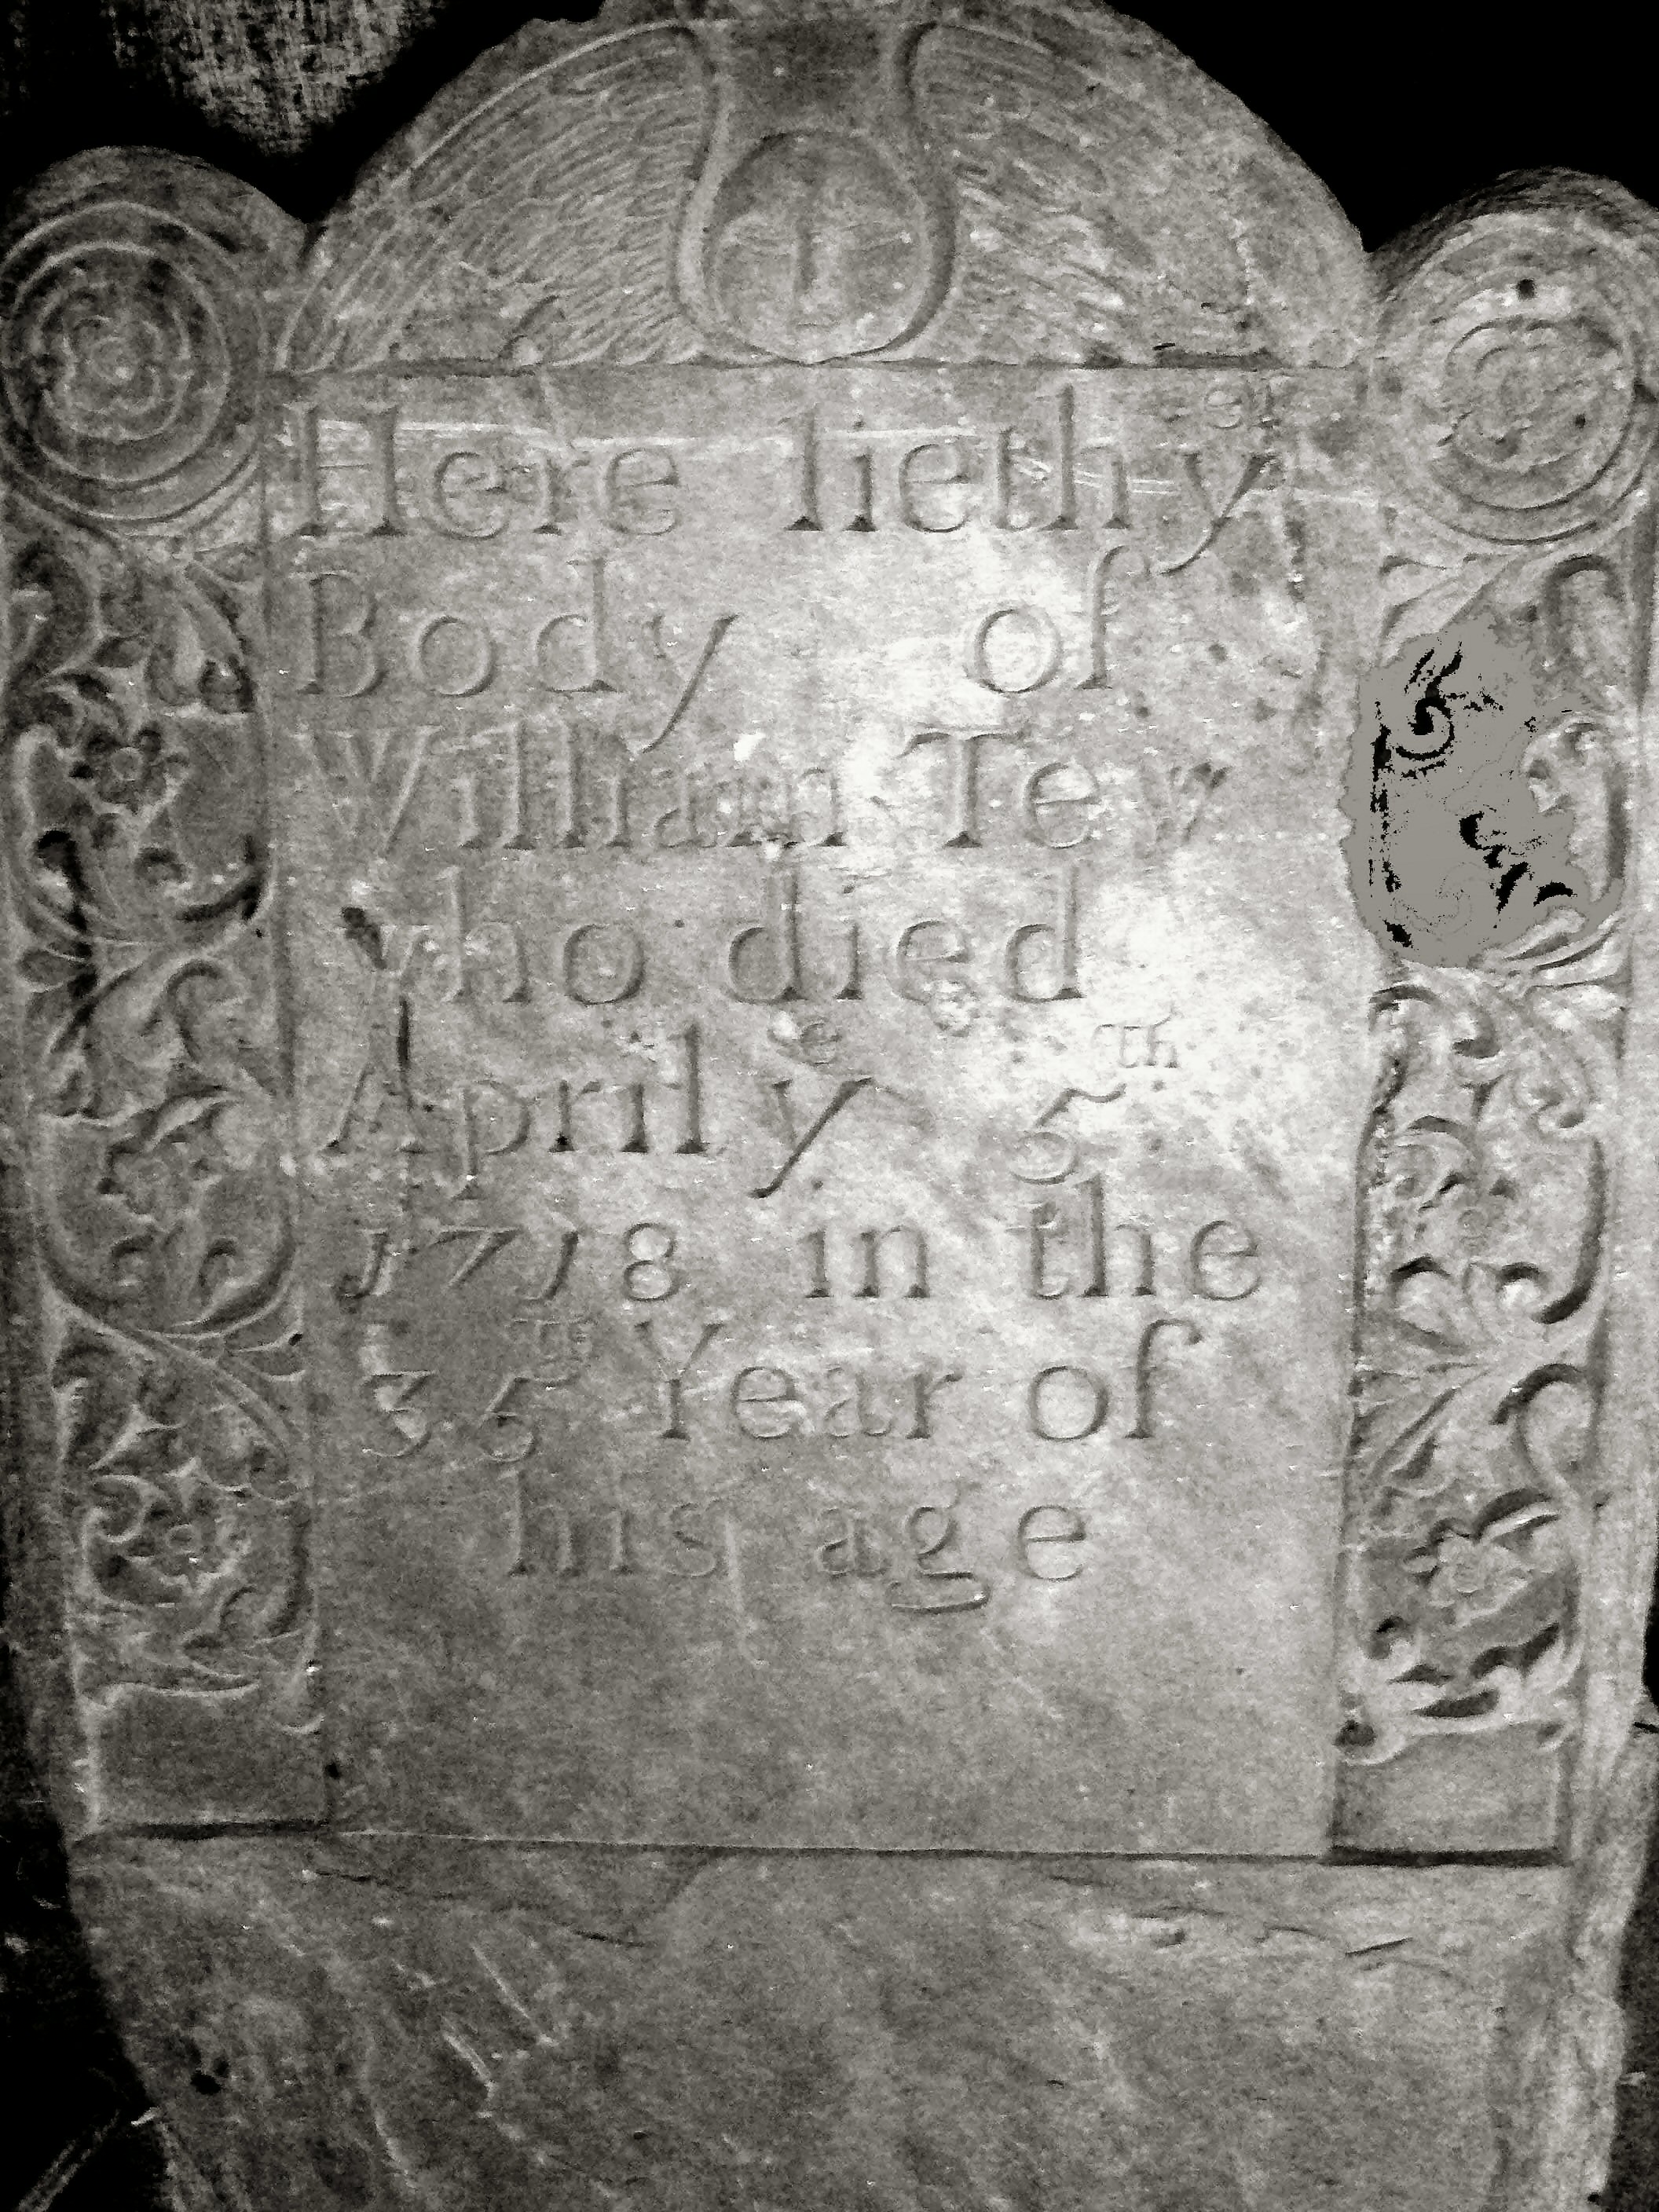 Here lieth yᵉ
Body of
William Tew
who died
April yᵉ 5ᵗʰ
1718 in the
35ᵀᴴ Year of
his age